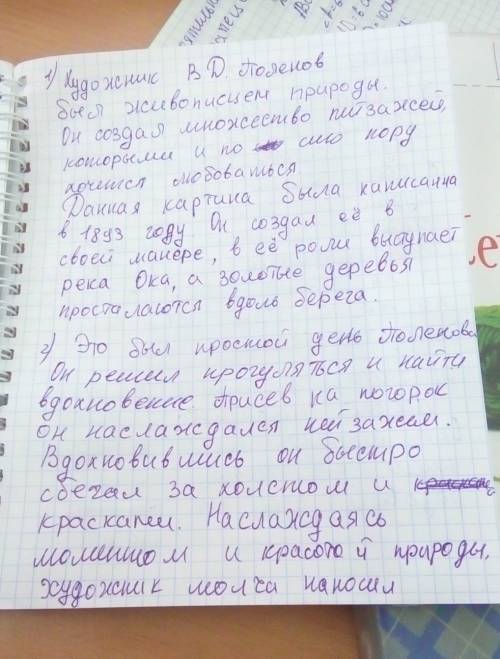 1) Художник В Д. Поленов
был живописцем природы.
Он создал множество пейзажей,
которыми и по сию порд
хочется любоваться.
Данная картина была написанна
в 1893 году Он создал её в
своей манере, в её роли выступает
река Ока, а золотые деревья
просталаются вдоль берега.
2) Это был простой день Поленова
Он решил прогуляться и найти
вдохновение. Присев на погорок
он наслаждался пейзажем.
Вдохновившись он быстро
сбегал за холстом и
красками. Наслаждаясь
моментом и красотой природы,
художник молча наносил